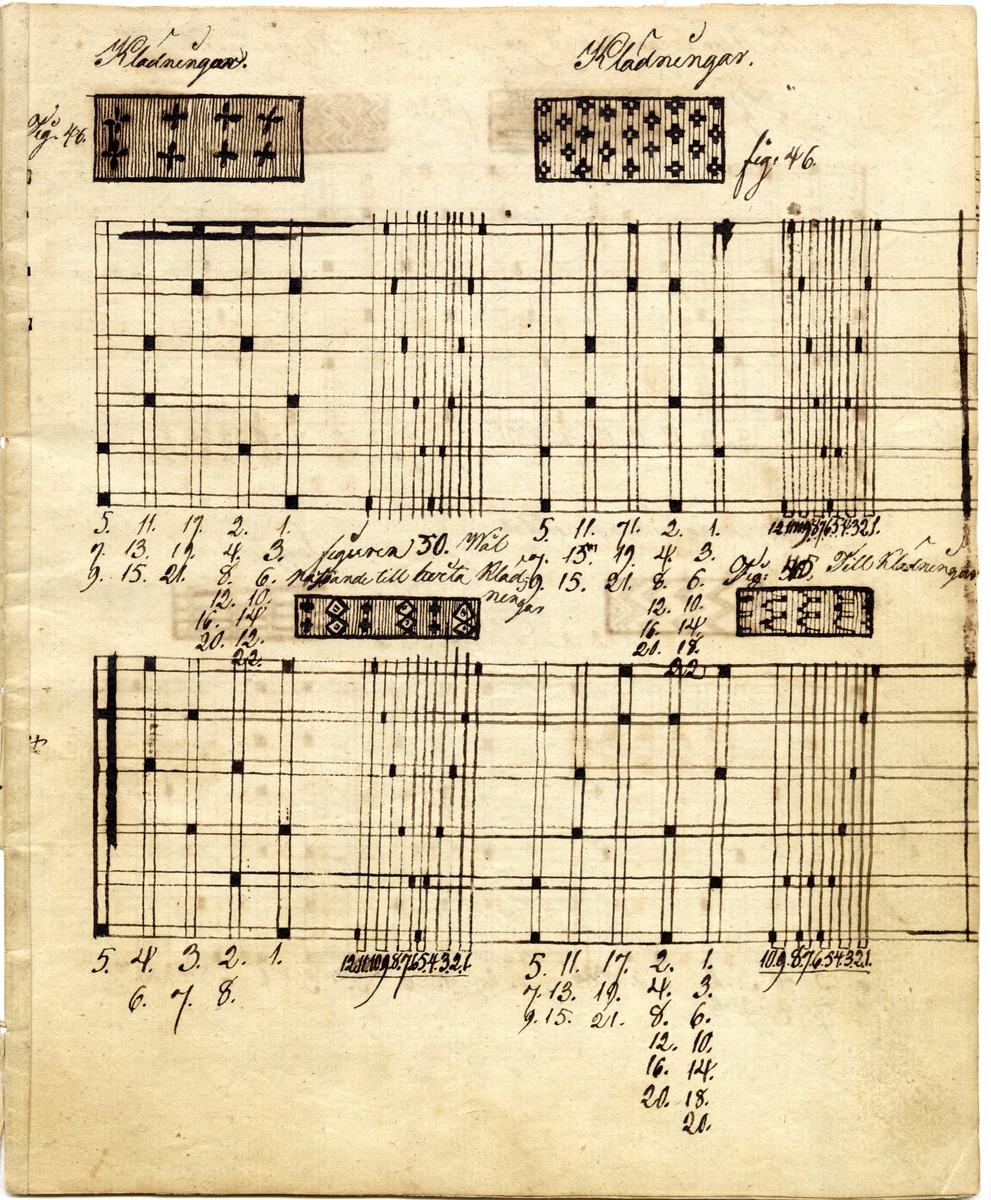 Klädningar.
Klädningar.
Fig: 46.
fig: 46.
5. 11. 17. 2. 1.
7. 13. 19. 4. 3.
9. 15. 21. 8. 6.
12. 10.
16. 14
20. 12.
22.
5. 11. 71. 2. 1.
7. 13. 19. 4. 3.
9. 15. 21. 8. 6.
12. 10.
16. 14
20. 18.
22
12 11 10 9 8 7 6 5 4. 3 2 1.
figuren 50. Wäl
till Kläd-
ningar
Fig: Till Klädningar
5. 4. 3. 2. 1.
6. 7. 8.
12. 11. 10. 9. 8. 7. 6. 5. 4. 3. 2. 1.
5. 11. 17. 2. 1.
7. 13. 19. 4. 3.
9. 15. 21. 8. 6.
12. 10.
16. 14.
20. 18.
20.
10. 9. 8. 7. 6. 5. 4. 3. 2. 1.